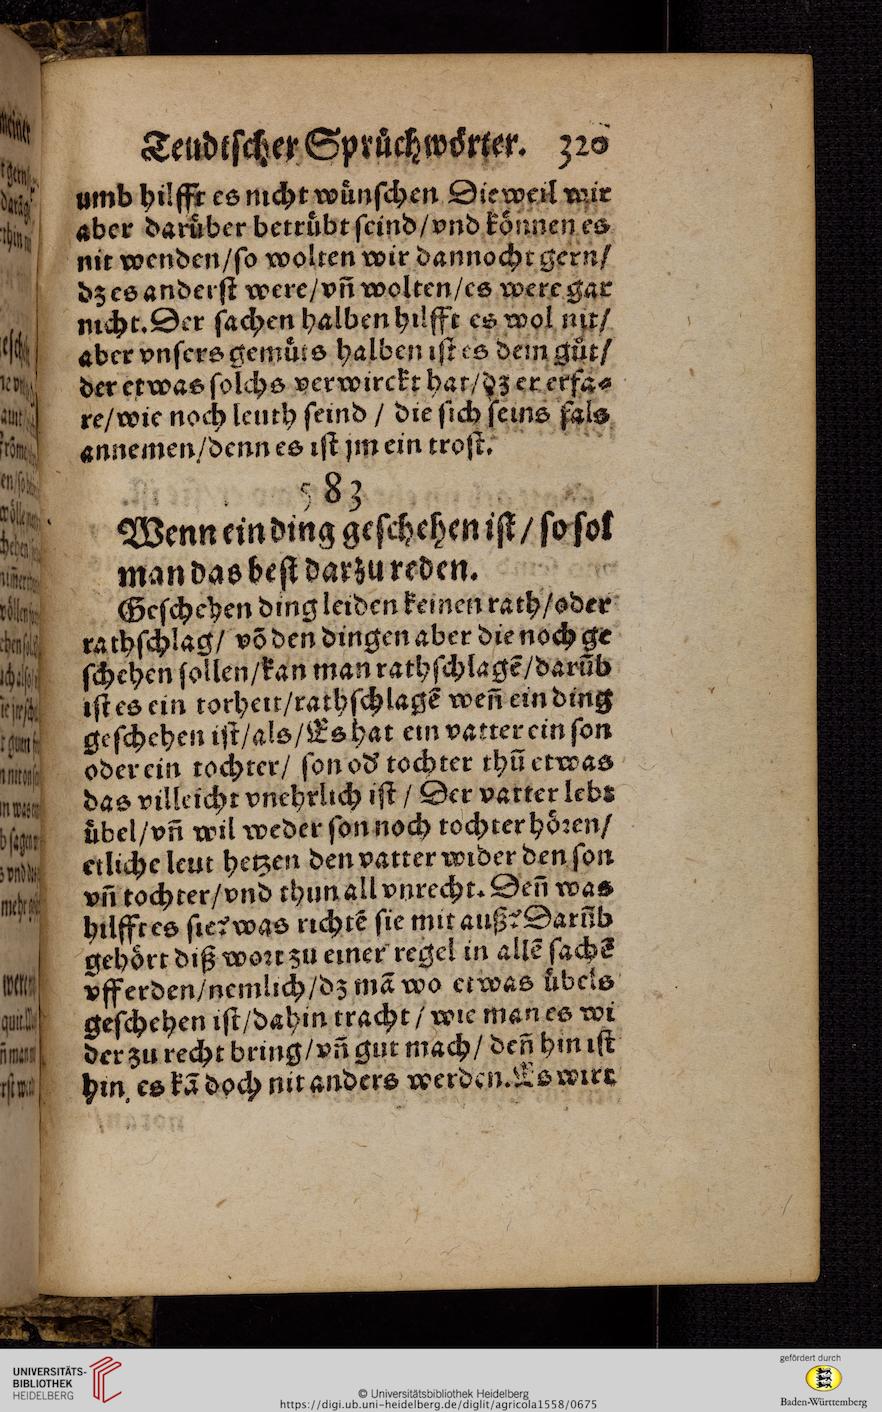 Teudtſcher Sprůchwoͤrter. 320
umb hilfft es nicht wůnſchen Dieweil wir
aber darůber betrůbt ſeind/vnd koͤnnen es
nit wenden/ſo wolten wir dannocht gern/
dz es anderſt were/vñ wolten/es were gar
nicht. Der ſachen halben hilfft es wol nit/
aber vnſers gemůts halben iſt es dem gůt/
der etwas ſolchs verwirckt hat/dz er erfa⸗
re/wie noch leuth ſeind / die ſich ſeins fals
annemen/denn es iſt jm ein troſt.
583
Wenn ein ding geſchehen iſt/ ſo ſol
man das beſt darzu reden.
Geſchehen ding leiden keinen rath/oder
rathſchlag/ võ den dingen aber die noch ge
ſchehen ſollen/kan man rathſchlagẽ/darũb
iſt es ein torheit/rathſchlagẽ weñ ein ding
geſchehen iſt/als/Es hat ein vatter ein ſon
oder ein tochter/ ſon od͛ tochter thů etwas
das villeicht vnehrlich iſt / Der vatter lebt
ůbel/vñ wil weder ſon noch tochter hoͤꝛen/
etliche leut hetzen den vatter wider den ſon
vñ tochter/vnd thun all vnrecht. Deñ was
hilfft es ſie? was richtẽ ſie mit auß? Darũb
gehoͤrt diß woꝛt zu einer regel in allẽ ſachẽ
vff erden/nemlich/dz mã wo etwas ůbels
geſchehen iſt/dahin tracht/ wie man es wi
der zu recht bring/vñ gut mach/ deñ hin iſt
hin, es kã doch nit anders werden. Es wirt
UNIVERSITÄTS-
BIBLIOTHEK
HEIDELBERG
© Universitätsbibliothek Heidelberg
https://digi.ub.uni-heidelberg.de/diglit/agricola1558/0675
gefördert durch
Baden-Württemberg